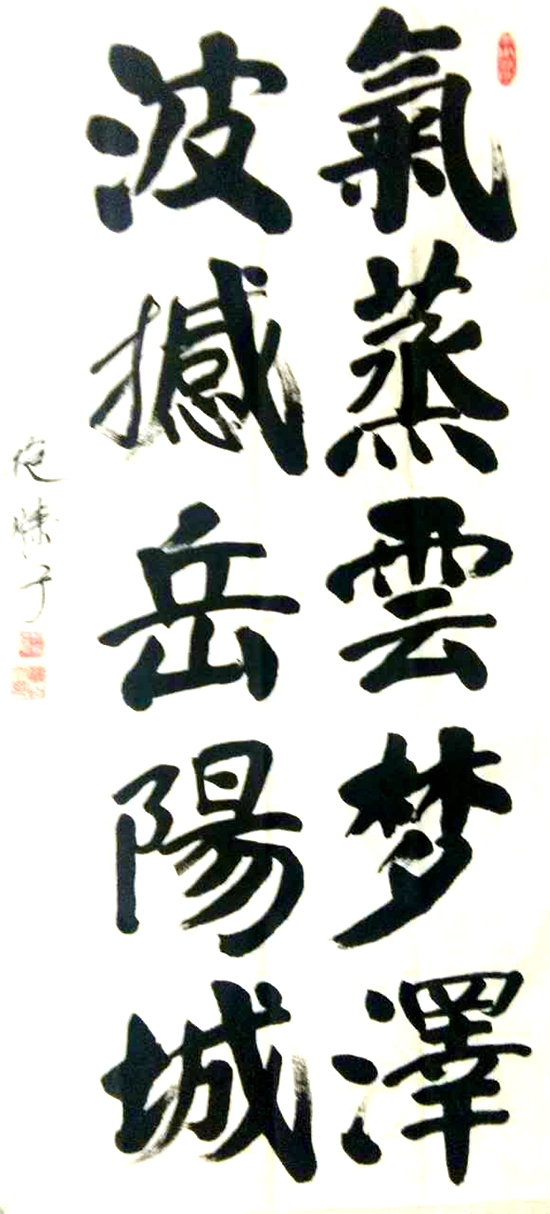 氣蒸雲梦澤
波撼岳陽城